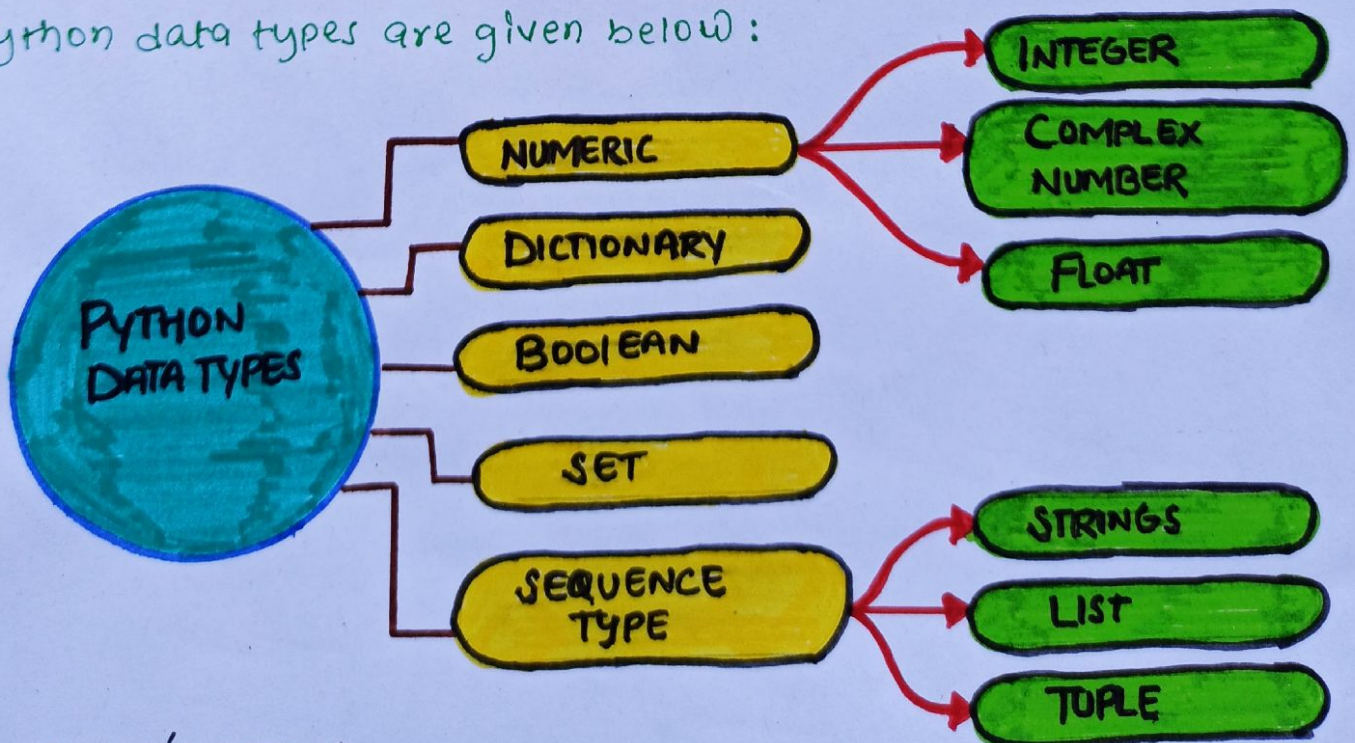 ython data types are given below:
PYTHON
DATA TYPES
NUMERIC
DICTIONARY
BOOLEAN
SET
SEQUENCE
TYPE
INTEGER
COMPLEX
NUMBER
FLOAT
STRINGS
LIST
TUPLE